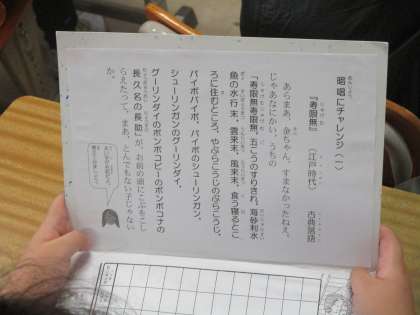 暗唱にチャレンジ(一)
『寿限無』 (江戸時代) 古典落語
あらまあ、金ちゃん、すまなかったねえ。
じゃあなにかい、うちの
「寿限無寿限無、五こうのすりきれ、海砂利水
魚の水行末、雲来末、風来末、食う寝るとこ
ろに住むところ、やぶらこうじのぶらこうじ、
パイポパイポ、パイポのシューリンガン、
シューリンガンのグーリンダイ、
グーリンダイのポンポコピーのポンポコナの
長久名の長助」が、お前の頭にこぶをこし
らえたって、まあ、とんでもない子じゃない
か。